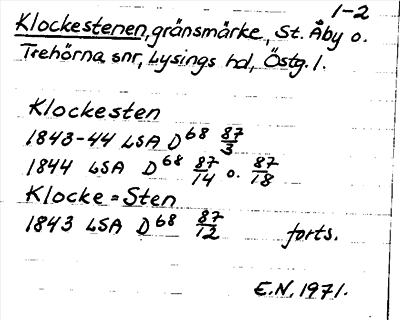 1-2
Klockestenen, gränsmärke, St. Åby o.
Trehörna snr, Lysings hd, Östg. l.
Klockesten
1843-44 LSA D68 87/3
1844 LSA D68 87/14 o. 87/18
Klocke=Sten
1843 LSA D68 87/12 forts.
E.N. 1971.